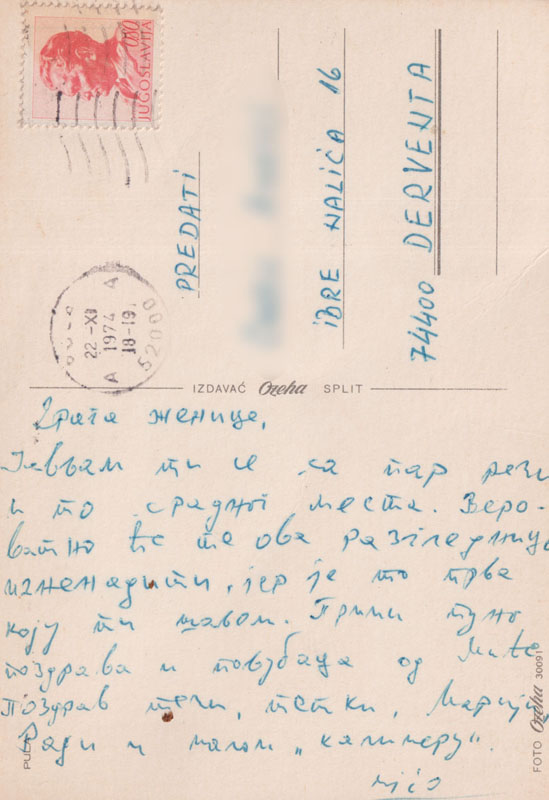 0.80
JUGOSLAVIJA
22 -XI
1974
18-19
A A
52000
PREDATI
IBRE HALIĆA 16
74400 DERVENTA
IZDAVAČ Ozeha SPLIT
Драга женице,
Јављам ти се са пар речи
и то с радног места. Веро-
ватно ће те ова разгледница
изненадити, јер је то прва
коју ти шаљем. Прими пуно
поздрава и пољубаца од Миће
Поздрав течи, тетки, Марији
Ради и малом „калимеру".
Мићо
PULA
FOTO Ozeha